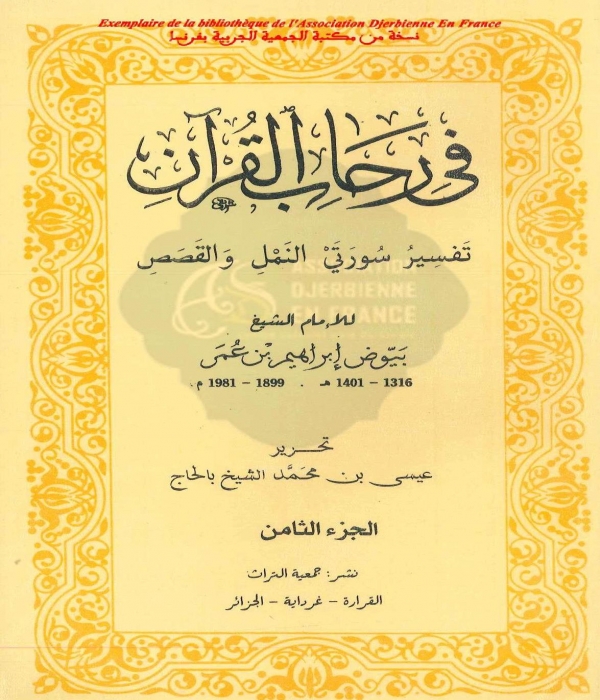 Exemplaire de la bibliothèque de l'Association Djerbienne En France
نسخة من مكتبة الجمعية الجربية بفرنسا
في رحاب القرآن
تَفسِيرُ سُورَتَيْ النَمْلِ وَالقَصَصِ
ASSOCIATION
DJERBIENNE
EN FRANCE
للإمام الشيخ
بَيّوض إبراهيم بن عُمَر
1316 - 1401 هـ . 1899 - 1981 م.
تحرير
عيسى بن محمَّد الشيخ بالحاج
الجزء الثامن
نشر: جمعية التراث
القرارة - غرداية - الجزائر